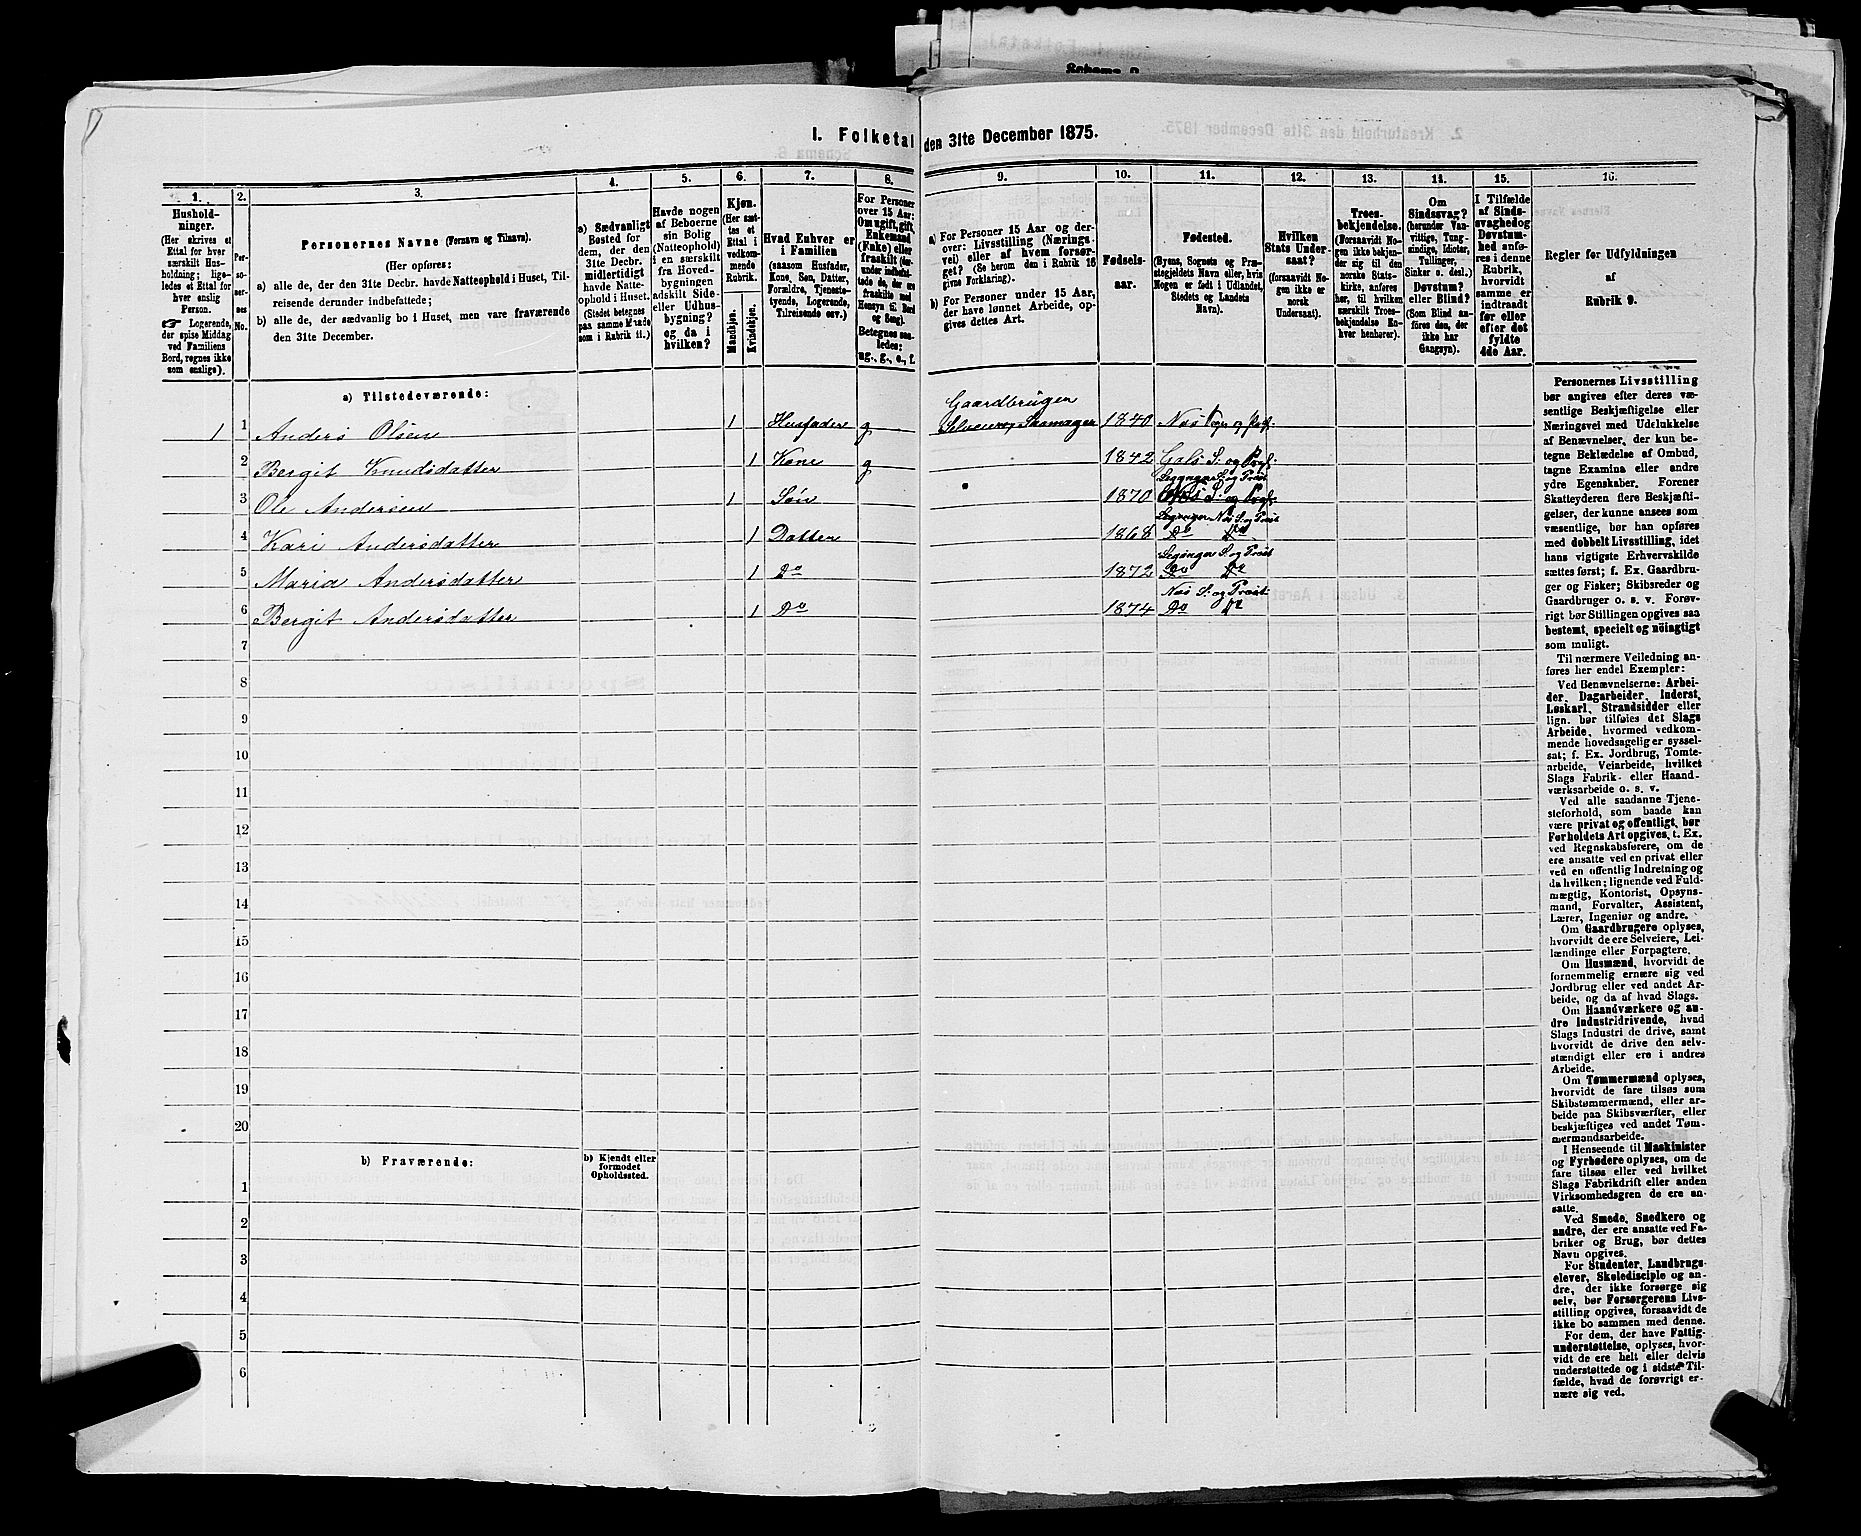 Schema 2
1. Folketal den 31te December 1875.
1. 2. 3. 4. 5. 6. 7. 8. 9. 10. 11. 12. 13. 14. 15. 16.
Hushold-
ninger.
(Her skrives et
Ettal for hver
særskilt Hus-
holdning; lige-
ledes et Ettal for
hver enslig
Person.
☞ Logerende,
der spise Middag
ved Familiens
Bord, regnes ikke
som enslige).
Per-
so-
ner-
nes
No.
Personernes Navne (Fornavn og Tilnavn).
(Her opføres:
a) alle de, der den 31te Decbr. havde Natteophold i Huset, Til-
reisende derunder indbefattede;
b) alle de, der sædvanlig bo i Huset, men vare fraværende
den 31te December.
a) Sædvanligt
Bosted for
dem, der den
31te Decbr.
midlertidigt
havde Natte-
ophold i Huset.
(Stedet betegnes
paa samme Maade
som i Rubrik 11.)
Havde nogen
af Beboerne
sin Bolig
(Natteophold)
i en særskilt
fra Hoved-
bygningen
adskilt Side-
eller Udhus-
bygning?
og da i
hvilken?
Kjøn.
(Her sæt-
tes et
Ettal i
vedkom-
mende
Rubrik.
Mandkjøn.
Kvindekjøn.
Hvad Enhver er
i Familien
(saasom Husfader,
Kone, Søn, Datter,
Forældre, Tjeneste-
tyende, Logerende,
Tilreisende osv.)
For Personer
over 15 Aar:
Om ugift, gift,
Enkemand
(Enke) eller
fraskilt (der-
under indbefat-
tede de, der ere
fraskilte med
Hensyn til Bord
og Seng).
Betegnes saa-
ledes:
ug., g., e., f.
a) For Personer 15 Aar og der-
over: Livsstilling (Nærings-
vei) eller af hvem forsør-
get? (Se herom den i Rubrik 16
givne Forklaring).
b) For Personer under 15 Aar,
der have lønnet Arbeide, op-
gives dettes Art.
Fødsels-
aar.
Fødested.
(Byens, Sognets og Præ-
stegjeldets Navn eller, hvis
Nogen er født i Udlandet,
Stedets og Landets
Navn).
Hvilken
Stats Under-
saat?
(forsaavidt No-
gen ikke er
norsk
Undersaat).
Troes-
bekjendelse.
(Forsaavidt No-
gen ikke bekjen-
der sig til den
norske Stats-
kirke, anføres
her, til hvilken
særskilt Troes-
bekjendelse En-
hver henhører).
Om
Sindssvag?
(herunder Van-
vittige, Tung-
sindige, Idioter,
Tullinger,
Sinker o. desl.)
Døvstum?
eller Blind?
(Som Blind an-
føres den, der
ikke har
Gangsyn).
I Tilfælde
af Sinds-
svaghed og
Døvstum-
hed anfø-
res i denne
Rubrik,
hvorvidt
samme er
indtraadt
før eller
efter det
fyldte
4de Aar.
Regler for Udfyldningen
af
Rubrik 9.
a) Tilstedeværende:
Gaardbruger
1 1 Anders Olsen 1 Husfader g Selveier, Skomager 1840 Næs Sogn og Præst.
2 Bergit Knudsdatter 1 Kone g 1842 Gols S. og Præst.
Leganger S. og Præst
3 Ole Andersen 1 Søn 1870 Næs S. og Præst.
Leganger Næs S. og Præst
4 Kari Andersdatter 1 Datter 1868 Do Do
Leganger S. og Præst
5 Maria Andersdatter 1 Do 1872 Do Do
Næs S. og Præst
6 Bergit Andersdatter 1 Do 1874 Do Do
7
8
9
10
11
12
13
14
15
16
17
18
19
20
b) Fraværende:
b) Kjendt eller
formodet
Opholdssted.
1
2
3
4
5
6
Personernes Livsstilling
bør angives efter deres væ-
sentlige Beskjæftigelse eller
Næringsvei med Udelukkelse
af Benævnelser, der kun be-
tegne Beklædelse af Ombud,
tagne Examina eller andre
ydre Egenskaber. Forener
Skatteyderen flere Beskjæfti-
gelser, der kunne ansees som
væsentlige, bør han opføres
med dobbelt Livsstilling, idet
hans vigtigste Erhvervskilde
sættes først; f. Ex. Gaardbru-
ger og Fisker; Skibsreder og
Gaardbruger o. s. v. Forøv-
rigt bør Stillingen opgives saa
bestemt, specielt og nöiagtigt
som muligt.
Til nærmere Veiledning an-
føres her endel Exempler:
Ved Benævnelserne: Arbei-
der, Dagarbeider, Inderst,
Løskarl, Strandsidder eller
lign. bør tilføies det Slags
Arbeide, hvormed vedkom-
mende hovedsagelig er syssel-
sat; f. Ex. Jordbrug, Tomte-
arbeide, Veiarbeide, hvilket
Slags Fabrik- eller Haand-
værksarbeide o. s. v.
Ved alle saadanne Tjene-
steforhold, som baade kan
være privat og offentligt, bør
Forholdets Art opgives, t. Ex.
ved Regnskabsførere, om de
ere ansatte ved en privat eller
ved en offentlig Indretning og
da hvilken; lignende ved Fuld-
mægtig, Kontorist, Opsyns-
mand, Forvalter, Assistent,
Lærer, Ingeniør og andre.
Om Gaardbrugere oplyses,
hvorvidt de ere Selveiere, Lei-
lændinge eller Forpagtere.
Om Husmænd, hvorvidt de
fornemmelig ernære sig ved
Jordbrug eller ved andet Ar-
beide, og da af hvad Slags.
Om Haandværkere og an-
dre Industridrivende, hvad
Slags Industri de drive, samt
hvorvidt de drive den selv-
stændigt eller ere i andres
Arbeide.
Om Tømmermænd oplyses,
hvorvidt de fare tilsøs som
Skibstømmermænd, eller ar-
beide paa Skibsværfter, eller
beskjæftiges ved andet Tøm-
mermandsarbeide.
I Henseende til Maskinister
og Fyrbødere oplyses, om de
fare tilsøs eller ved hvilket
Slags Fabrikdrift eller anden
Virksomhedsgren de ere an-
satte.
Ved Smede, Snedkere og
andre, der ere ansatte ved Fa-
briker og Brug, bør dettes
Navn opgives.
For Studenter, Landbrugs-
elever, Skoledisciple og an-
dre, der ikke forsørge sig
selv, bør Forsørgerens Livs-
stilling opgives, forsaavidt de
ikke bo sammen med denne.
For dem, der have Fattig-
understøttelse, oplyses, hvor-
vidt de ere helt eller delvis
understøttede og i sidste Til-
fælde, hvad de forøvrigt er-
nære sig ved.